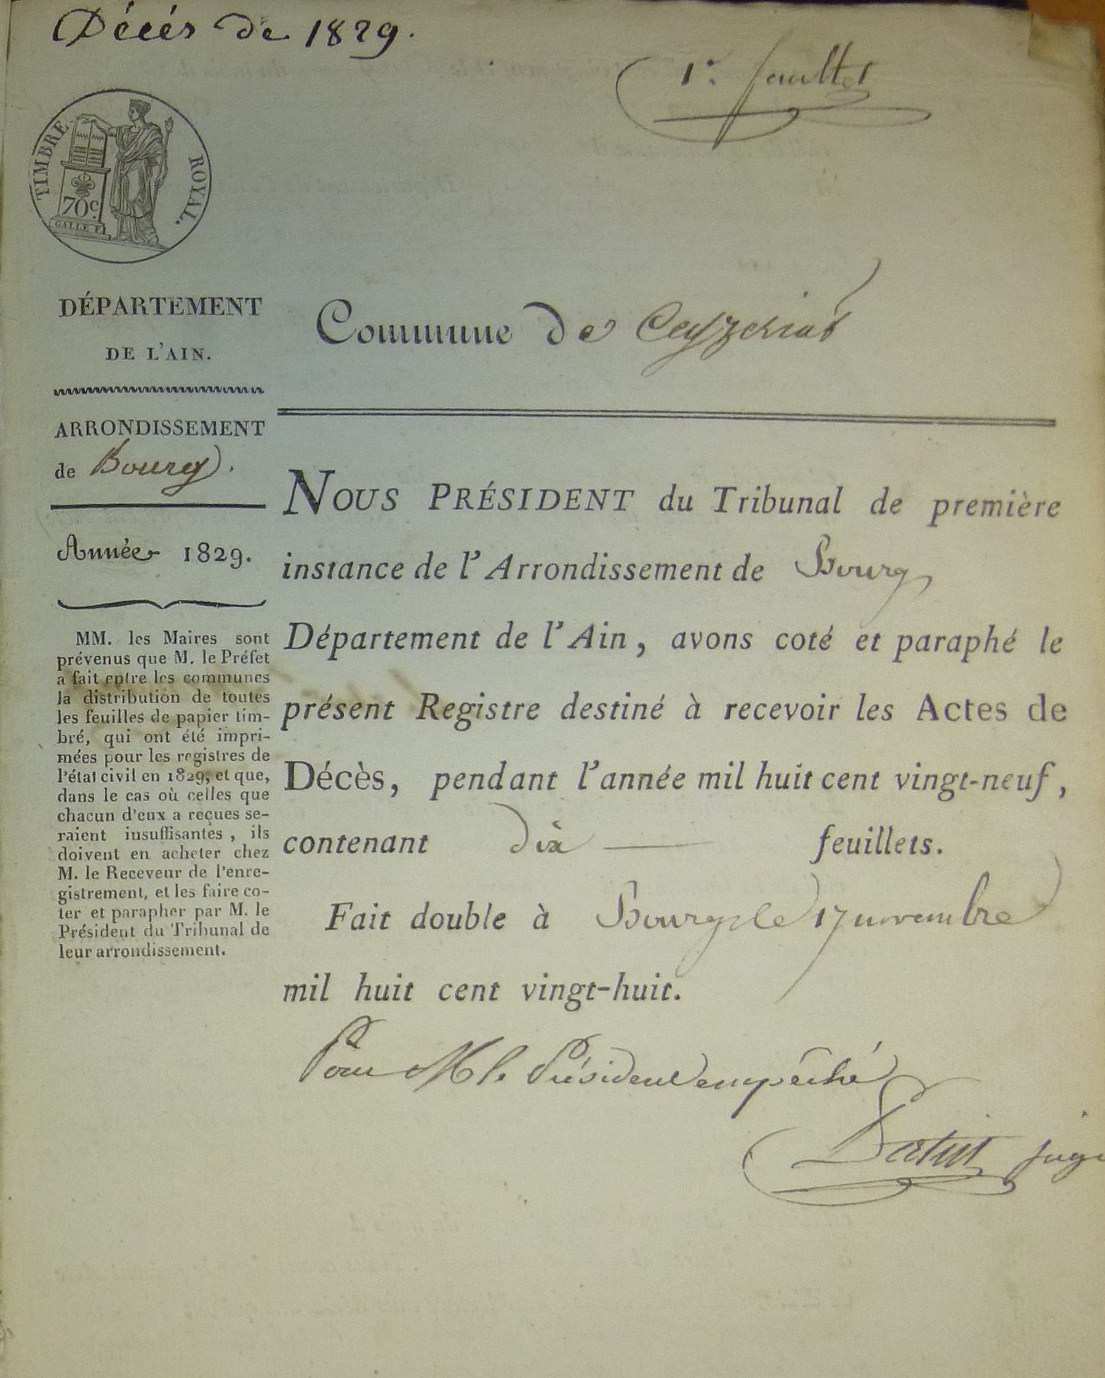 Décés de 1829.
1er feuillet
TIMBRE ROYAL.
70c
GALLE F.
DÉPARTEMENT
DE L'AIN.
ARRONDISSEMENT
de Bourg.
Année 1829.
MM. les Maires sont
prévenus que M. le Préfet
a fait entre les communes
la distribution de toutes
les feuilles de papier tim-
bré, qui ont été impri-
mées pour les registres de
l'état civil en 1829; et que,
dans le cas où celles que
chacun d'eux a reçues se-
raient insuffisantes, ils
doivent en acheter chez
M. le Receveur de l'enre-
gistrement, et les faire co-
ter et parapher par M. le
Président du Tribunal de
leur arrondissement.
Commune de Ceyzeriat
NOUS PRÉSIDENT du Tribunal de première
instance de l'Arrondissement de Bourg
Département de l'Ain, avons coté et paraphé le
présent Registre destiné à recevoir les Actes de
Décès, pendant l'année mil huit cent vingt-neuf,
contenant dix — feuillets.
Fait double à Bourg le 17 novembre
mil huit cent vingt-huit.
Pour M le Président empêché
juge